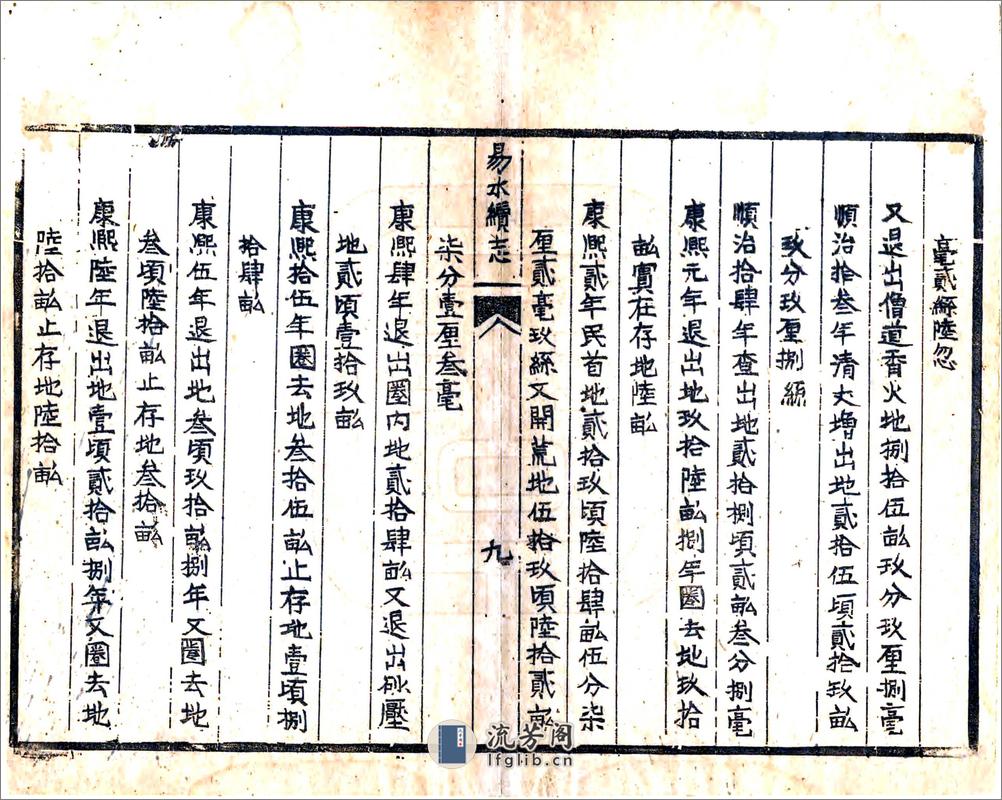 毫貳絲陸忽
又退出僧道香火地捌拾伍畝玖分玖厘捌毫
順治拾叁年清丈增出地貳拾伍頃貳拾玖畝
玖分玖厘捌絲
順治拾肆年查出地貳拾捌頃貳畝叁分捌毫
康熙元年退出地玖拾陸畝捌年圈去地玖拾
畝實在存地陸畝
康熙貳年民首地貳拾玖頃陸拾肆畝伍分柒
厘貳毫玖絲又開荒地伍拾玖頃陸拾貳畝
易水續志
九
柒分壹厘叁毫
康熙肆年退出圈內地貳拾肆畝又退出砂壓
地貳頃壹拾玖畝
康熙拾伍年圈去地叁拾伍畝止存地壹頃捌
拾肆畝
康熙伍年退出地叁頃玖拾畝捌年又圈去地
叁頃陸拾畝止存地叁拾畝
康熙陸年退出地壹頃貳拾畝捌年又圈去地
陸拾畝止存地陸拾畝
流芳阁
lfglib.cn